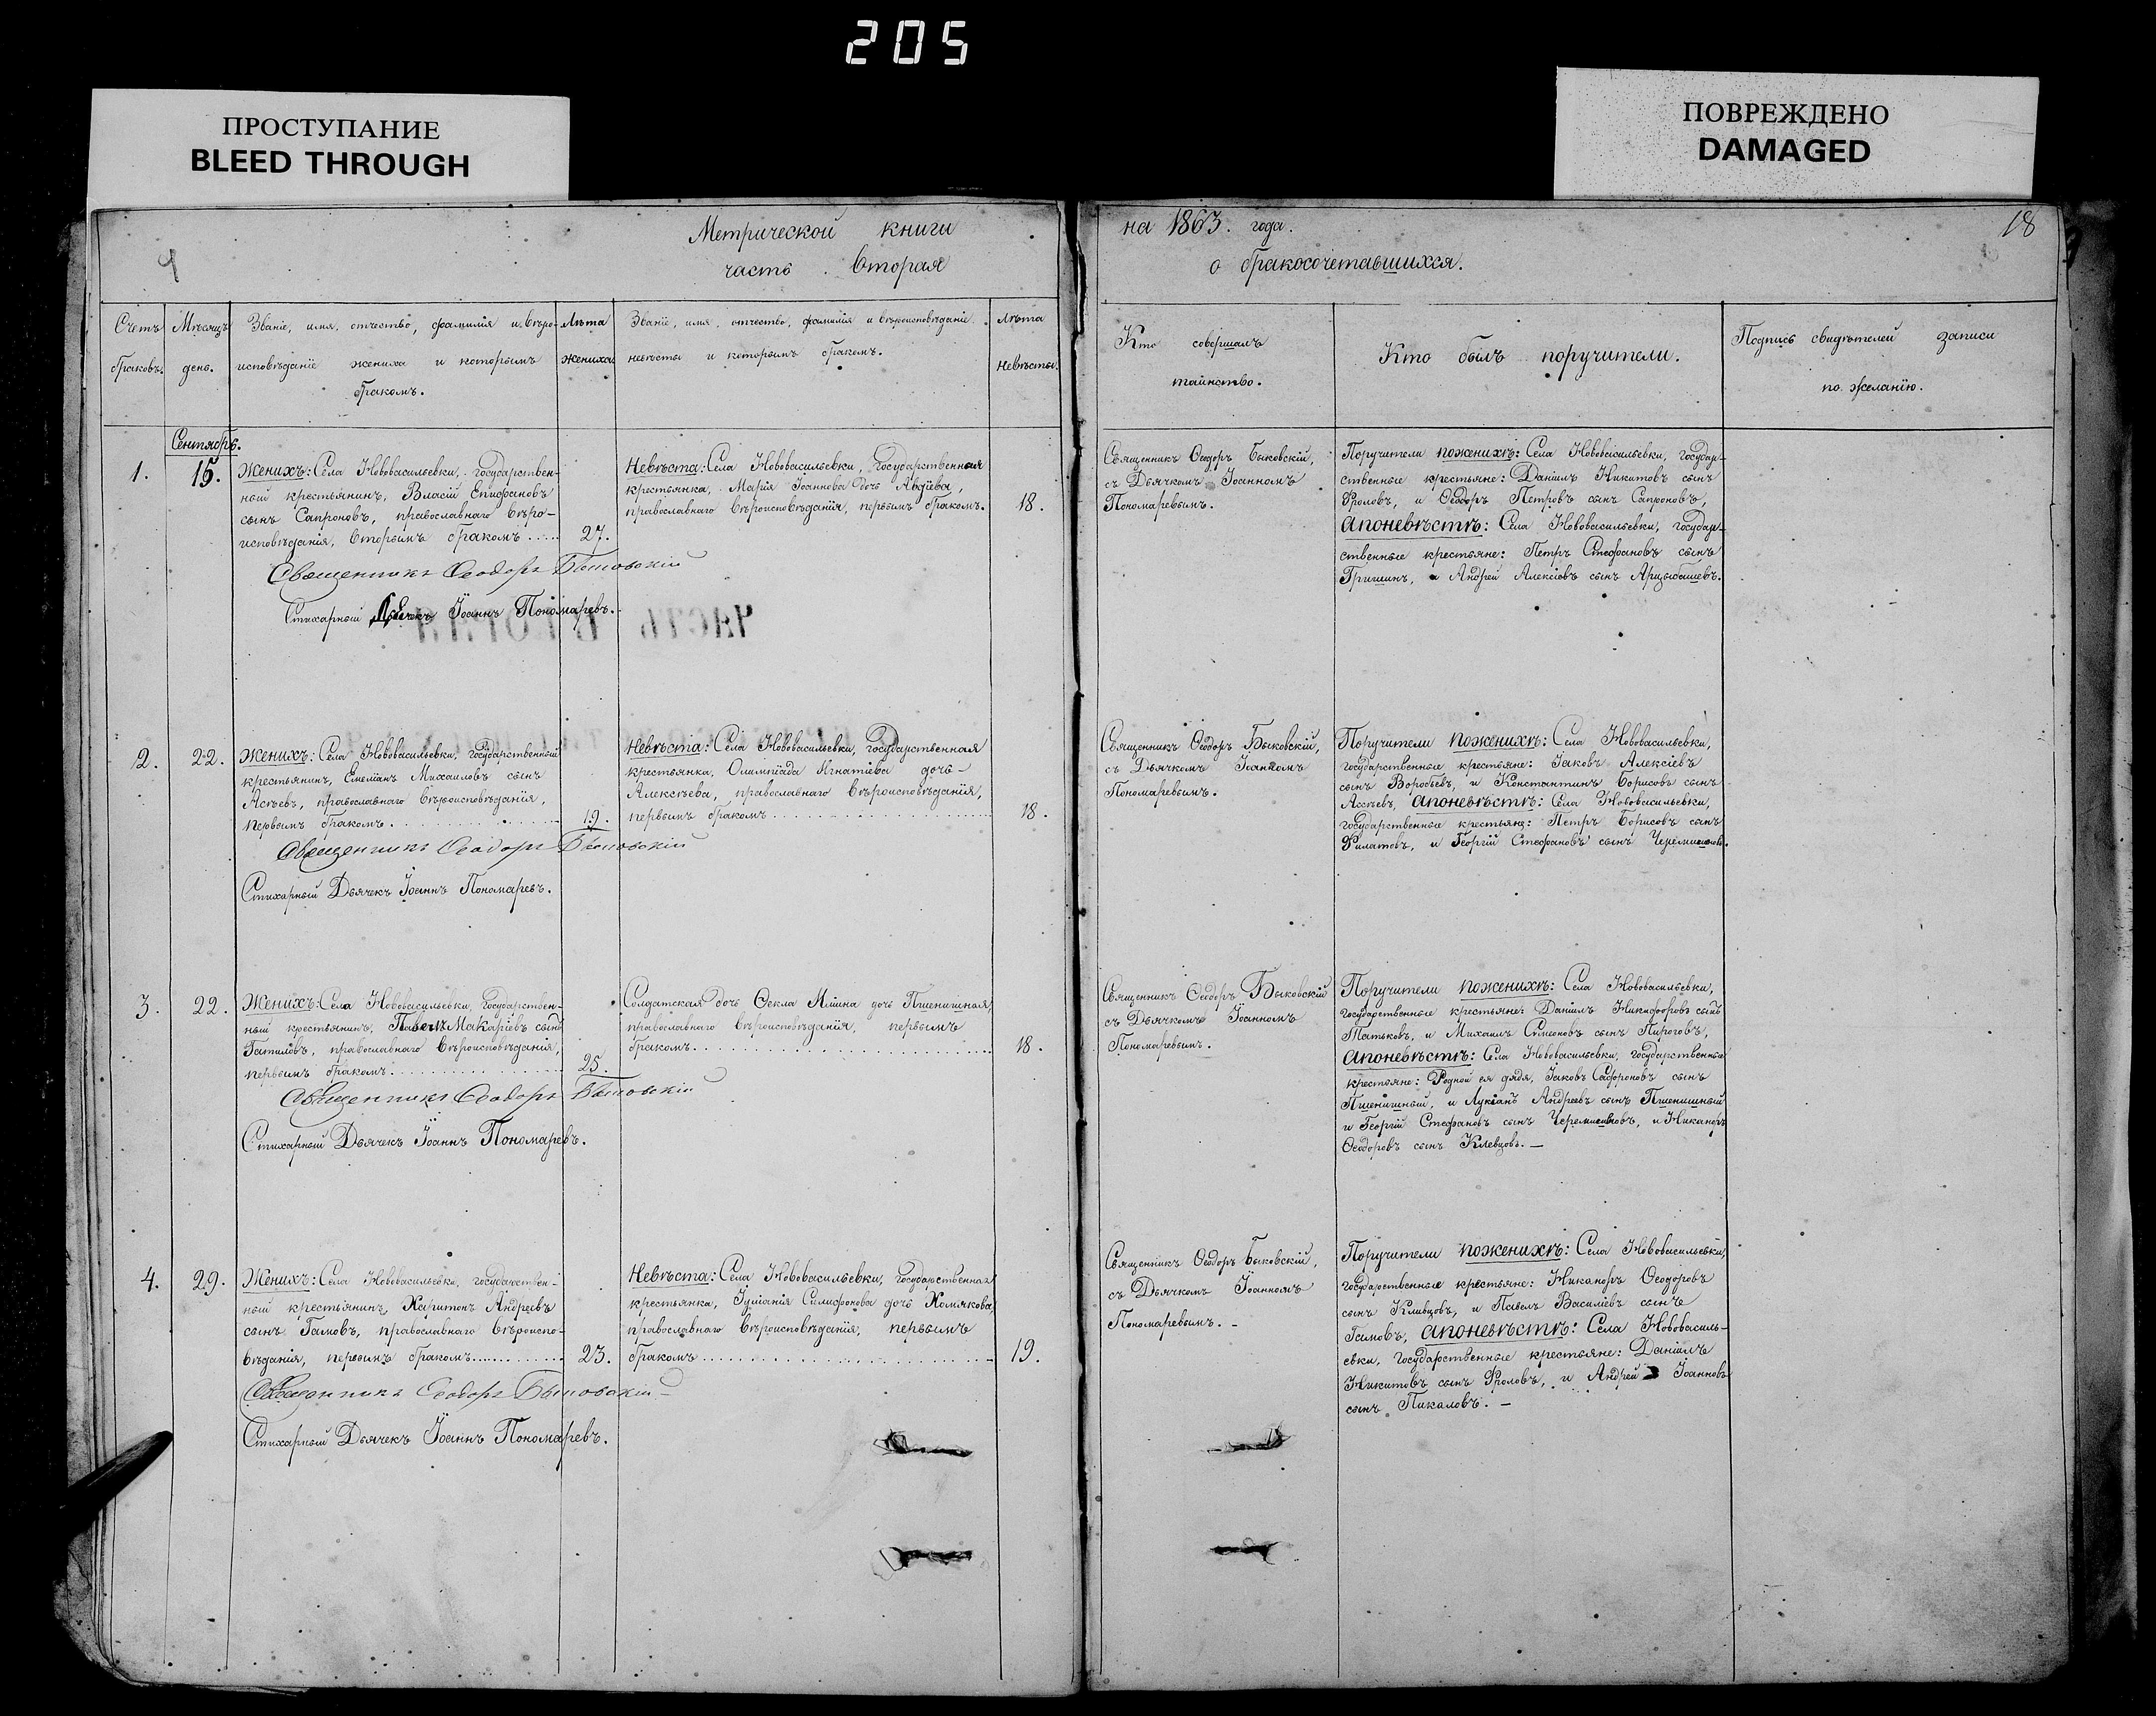 205
ПРОСТУПАНИЕ
BLEED THROUGH
ПОВРЕЖДЕНО
DAMAGED
Метрической книги
часть вторая
на 1863. года.
о бракосочетавшихся.
18
Счетъ
браковъ.
Мѣсяцъ
день.
Званіе, имя, отчество, фамилія и вѣро-
исповѣданіе жениха и которымъ
бракомъ.
Лѣта
жениха.
Званіе, имя, отчество, фамилія и вѣроисповѣданіе
невѣсты и которымъ бракомъ.
Лѣта
невѣсты.
Кто совершалъ
таинство.
Кто былъ поручители.
Подпись свидѣтелей записи
по желанію.
Сентябрь.
1.
15.
Женихъ: Села Нововасильевки, государствен-
ный крестьянинъ, Власій Епифановъ
сынъ Сапроновъ, православнаго вѣро-
исповѣданія, вторымъ бракомъ .....
27.
Священникъ Ѳеодоръ Быковскій
Стихарный Дьячекъ Іоаннъ Пономаревъ.
Невѣста: Села Нововасильевки, Государственная
крестьянка, Марія Іоаннова дочь Авдіева,
православнаго вѣроисповѣданія, первымъ бракомъ.
18.
Священникъ Ѳеодоръ Быковскій,
съ Дьячкомъ Іоанномъ
Пономаревымъ.
Поручители поженихѣ: Села Нововасильевки, государ-
ственные крестьяне: Даніилъ Никитовъ сынъ
Фроловъ, и Ѳеодоръ Петровъ сынъ Сапроновъ,
апоневѣстѣ: Села Нововасильевки, государ-
ственные крестьяне: Петръ Стефановъ сынъ
Гришинъ, и Андрей Алексіевъ сынъ Арцыбашевъ.
2.
22.
Женихъ: Села Нововасильевки, государственный
крестьянинъ, Емеліанъ Михаиловъ сынъ
Асѣевъ, православнаго вѣроисповѣданія,
первымъ бракомъ...
19.
Священникъ Ѳеодоръ Быковскій
Стихарный Дьячекъ Іоаннъ Пономаревъ.
Невѣста: Села Нововасильевки, государственная
крестьянка, Олимпіада Игнатіева дочь
Алексѣева, православнаго вѣроисповѣданія,
первымъ бракомъ...
18.
Священникъ Ѳеодоръ Быковскій,
съ Дьячкомъ Іоанномъ
Пономаревымъ.
Поручители поженихѣ: Села Нововасильевки,
государственные крестьяне: Іаковъ Алексіевъ
сынъ Воробьевъ, и Константинъ Борисовъ сынъ
Асѣевъ, апоневѣстѣ: Села Нововасильевки,
государственные крестьяне: Петръ Борисовъ сынъ
Филатовъ, и Георгій Стефановъ сынъ
3.
22.
Женихъ: Села Нововасильевки, Государствен-
ный крестьянинъ, Павелъ Макаріевъ сынъ
Гатиловъ, православнаго вѣроисповѣданія,
первымъ бракомъ...
25.
Священникъ Ѳеодоръ Быковскій
Стихарный Дьячекъ Іоаннъ Пономаревъ.
Солдатская дочь Ѳекла Ильина дочь Пшенишная,
православнаго вѣроисповѣданія, первымъ
бракомъ...
18.
Священникъ Ѳеодоръ Быковскій
съ Дьячкомъ Іоанномъ
Пономаревымъ.
Поручители поженихѣ: Села Нововасильевки,
государственные крестьяне: Даніилъ Никифоровъ сынъ
Татьковъ, и Михаилъ Симеоновъ сынъ Пироговъ,
апоневѣстѣ: Села Нововасильевки, государственные
крестьяне: Родной ея дядя, Іаковъ Сафроновъ сынъ
Пшенишный, и Лукіанъ Андреевъ сынъ Пшенишный
и Георгій Стефановъ сынъ и Никаноръ
Ѳеодоровъ сынъ Клевцовъ. —
4.
29.
Женихъ: Села Нововасильевки, государствен-
ный крестьянинъ, Харитонъ Андреевъ
сынъ Гамовъ, православнаго вѣроиспо-
вѣданія, первымъ бракомъ...
23.
Священникъ Ѳеодоръ Быковскій
Стихарный Дьячекъ Іоаннъ Пономаревъ.
Невѣста: Села Нововасильевки, Государственная
крестьянка, Іуліанія дочь Хомякова,
православнаго вѣроисповѣданія, первымъ
бракомъ...
19.
Священникъ Ѳеодоръ Быковскій,
съ Дьячкомъ Іоанномъ
Пономаревымъ. –
Поручители поженихѣ: Села Нововасильевки,
государственные крестьяне: Никаноръ Ѳеодоровъ
сынъ Клевцовъ, и Павелъ Василіевъ сынъ
Гамовъ, апоневѣстѣ: Села Нововасиль-
евки, Государственные крестьяне: Даніилъ
Никитовъ сынъ Фроловъ, и Андрей Іоанновъ
сынъ Пикаловъ. —